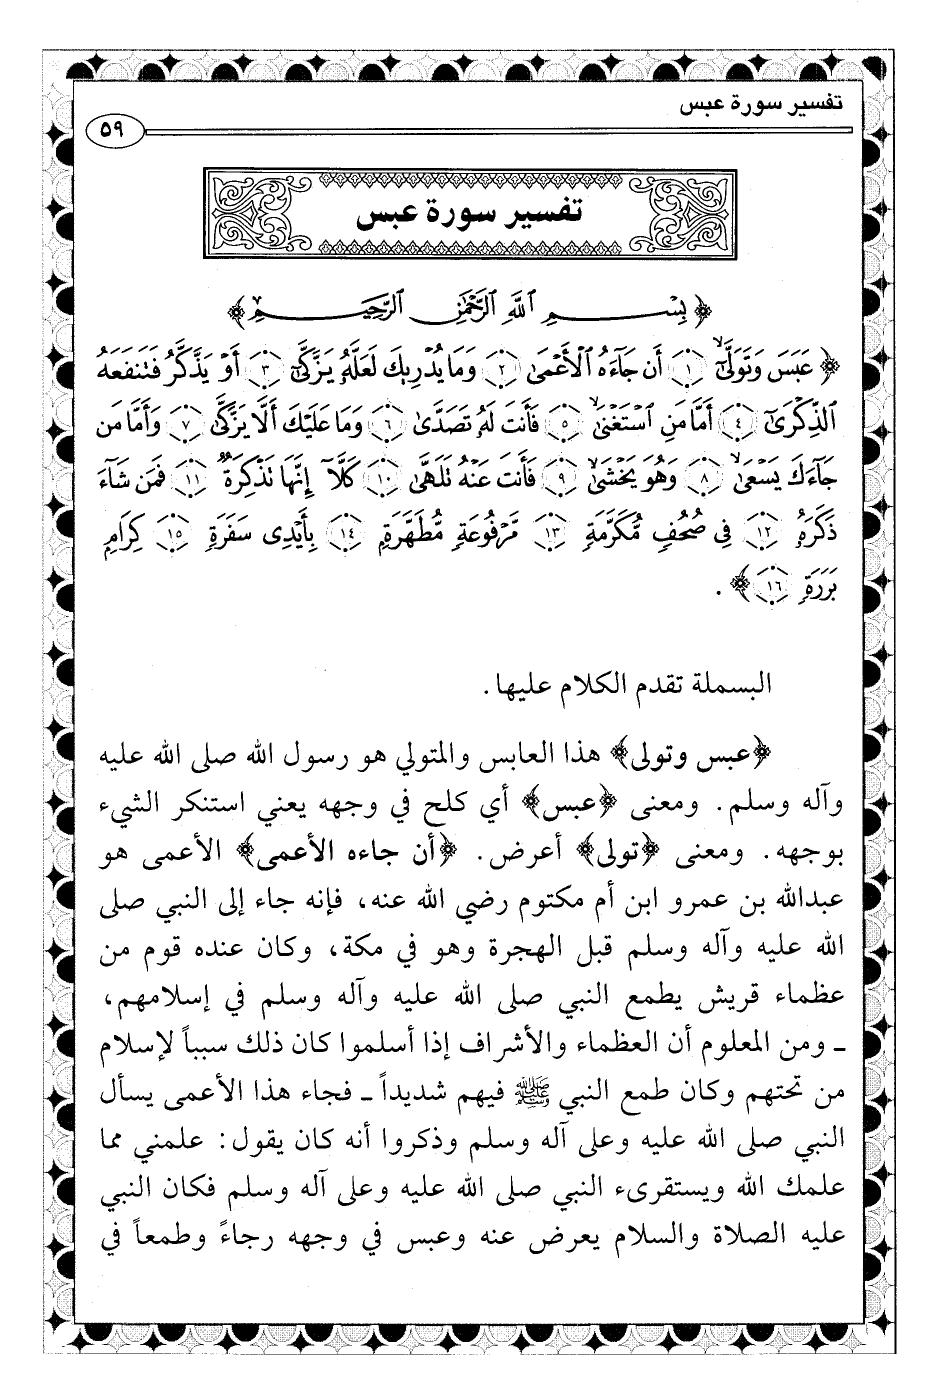 تفسير سورة عبس
٥٩
تفسير سورة عبس
﴿بِسْمِ اللَّهِ الرَّحْمَٰنِ الرَّحِيمِ﴾
﴿عَبَسَ وَتَوَلَّىٰٓ ۝١ أَن جَآءَهُ ٱلْأَعْمَىٰ ۝٢ وَمَا يُدْرِيكَ لَعَلَّهُۥ يَزَّكَّىٰٓ ۝٣ أَوْ يَذَّكَّرُ فَتَنفَعَهُ
ٱلذِّكْرَىٰٓ ۝٤ أَمَّا مَنِ ٱسْتَغْنَىٰ ۝٥ فَأَنتَ لَهُۥ تَصَدَّىٰ ۝٦ وَمَا عَلَيْكَ أَلَّا يَزَّكَّىٰ ۝٧ وَأَمَّا مَن
جَآءَكَ يَسْعَىٰ ۝٨ وَهُوَ يَخْشَىٰ ۝٩ فَأَنتَ عَنْهُ تَلَهَّىٰ ۝١٠ كَلَّآ إِنَّهَا تَذْكِرَةٌ ۝١١ فَمَن شَآءَ
ذَكَرَهُۥ ۝١٢ فِى صُحُفٍ مُّكَرَّمَةٍ ۝١٣ مَّرْفُوعَةٍ مُّطَهَّرَةٍۭ ۝١٤ بِأَيْدِى سَفَرَةٍ ۝١٥ كِرَامٍۭ
بَرَرَةٍ ۝١٦﴾ .
البسملة تقدم الكلام عليها.
﴿عبس وتولى﴾ هذا العابس والمتولي هو رسول الله صلى الله عليه
وآله وسلم. ومعنى ﴿عبس﴾ أي كلح في وجهه يعني استنكر الشيء
بوجهه. ومعنى ﴿تولى﴾ أعرض. ﴿أن جاءه الأعمى﴾ الأعمى هو
عبدالله بن عمرو ابن أم مكتوم رضي الله عنه، فإنه جاء إلى النبي صلى
الله عليه وآله وسلم قبل الهجرة وهو في مكة، وكان عنده قوم من
عظماء قريش يطمع النبي صلى الله عليه وآله وسلم في إسلامهم،
ـ ومن المعلوم أن العظماء والأشراف إذا أسلموا كان ذلك سبباً لإسلام
من تحتهم وكان طمع النبي ﷺ فيهم شديداً ـ فجاء هذا الأعمى يسأل
النبي صلى الله عليه وعلى آله وسلم وذكروا أنه كان يقول: علمني مما
علمك الله ويستقرىء النبي صلى الله عليه وعلى آله وسلم فكان النبي
عليه الصلاة والسلام يعرض عنه وعبس في وجهه رجاءً وطمعاً في